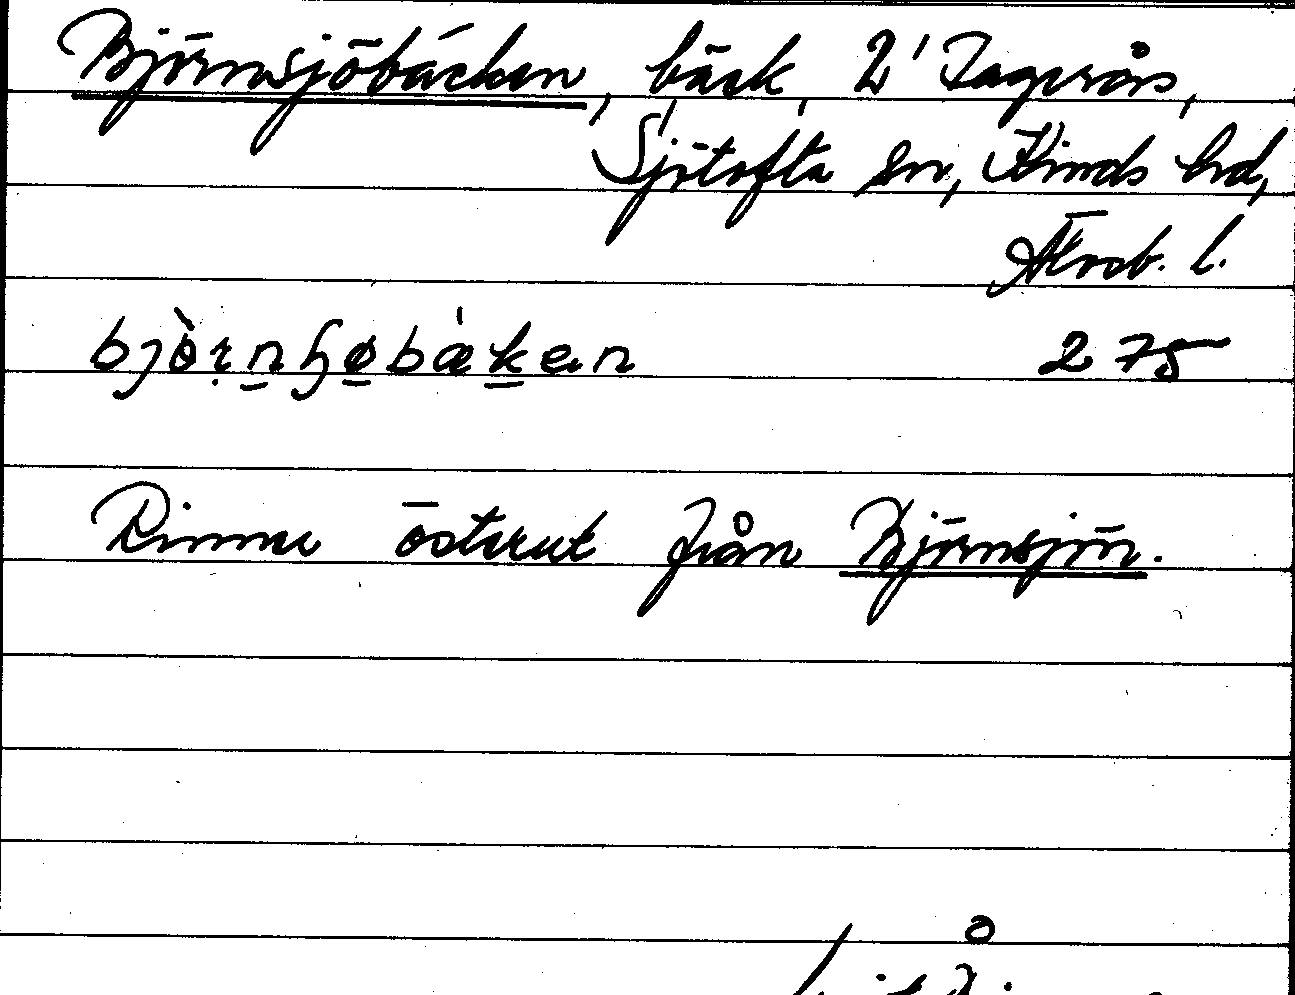 Björnsjöbäcken, bäck, 2' Jagerås,
Sjötofta sn, Kinds hd,
Älvsb. l.
bjòrnhøbæken 275
Rinner österut från Björnsjön.